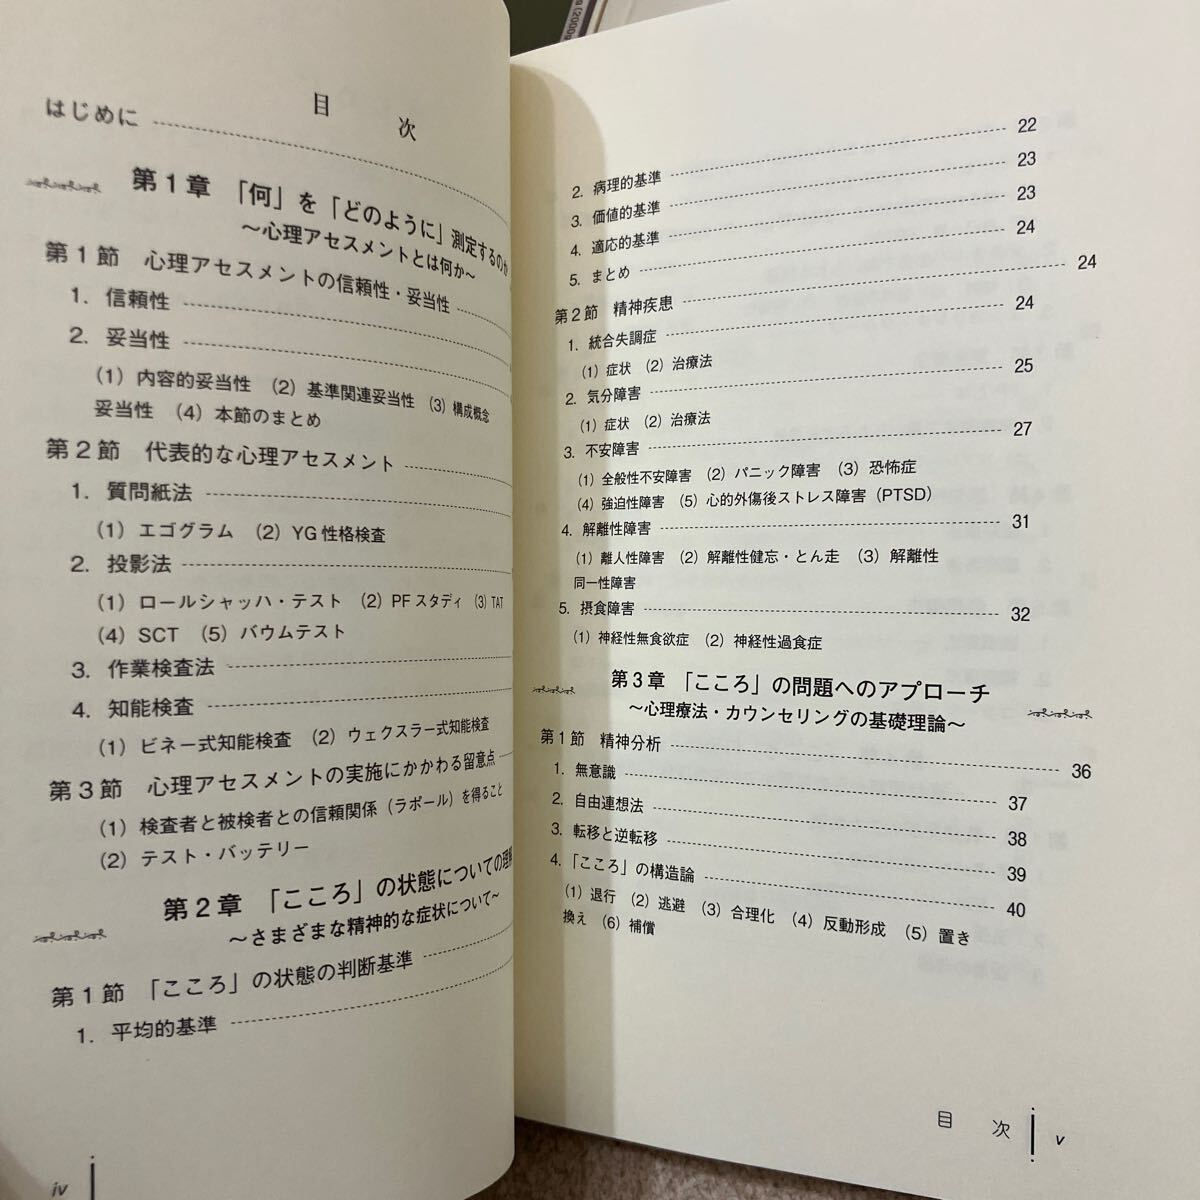 目 次
はじめに
第1章 「何」を「どのように」測定するのか
～心理アセスメントとは何か～
第1節 心理アセスメントの信頼性・妥当性
1. 信頼性
2. 妥当性
(1) 内容的妥当性 (2) 基準関連妥当性 (3) 構成概念
妥当性 (4) 本節のまとめ
第2節 代表的な心理アセスメント
1. 質問紙法
(1) エゴグラム (2) YG性格検査
2. 投影法
(1) ロールシャッハ・テスト (2) PFスタディ (3) TAT
(4) SCT (5) バウムテスト
3. 作業検査法
4. 知能検査
(1) ビネー式知能検査 (2) ウェクスラー式知能検査
第3節 心理アセスメントの実施にかかわる留意点
(1) 検査者と被検者との信頼関係(ラポール)を得ること
(2) テスト・バッテリー
第2章 「こころ」の状態についての理解
～さまざまな精神的な症状について～
第1節 「こころ」の状態の判断基準
1. 平均的基準
iv
22
2. 病理的基準 23
3. 価値的基準 23
4. 適応的基準 24
5. まとめ 24
第2節 精神疾患 24
1. 統合失調症
(1) 症状 (2) 治療法
2. 気分障害 25
(1) 症状 (2) 治療法
3. 不安障害 27
(1) 全般性不安障害 (2) パニック障害 (3) 恐怖症
(4) 強迫性障害 (5) 心的外傷後ストレス障害(PTSD)
4. 解離性障害 31
(1) 離人性障害 (2) 解離性健忘・とん走 (3) 解離性
同一性障害
5. 摂食障害 32
(1) 神経性無食欲症 (2) 神経性過食症
第3章 「こころ」の問題へのアプローチ
～心理療法・カウンセリングの基礎理論～
第1節 精神分析 36
1. 無意識 37
2. 自由連想法 38
3. 転移と逆転移 39
4. 「こころ」の構造論 40
(1) 退行 (2) 逃避 (3) 合理化 (4) 反動形成 (5) 置き
換え (6) 補償
目 次 v